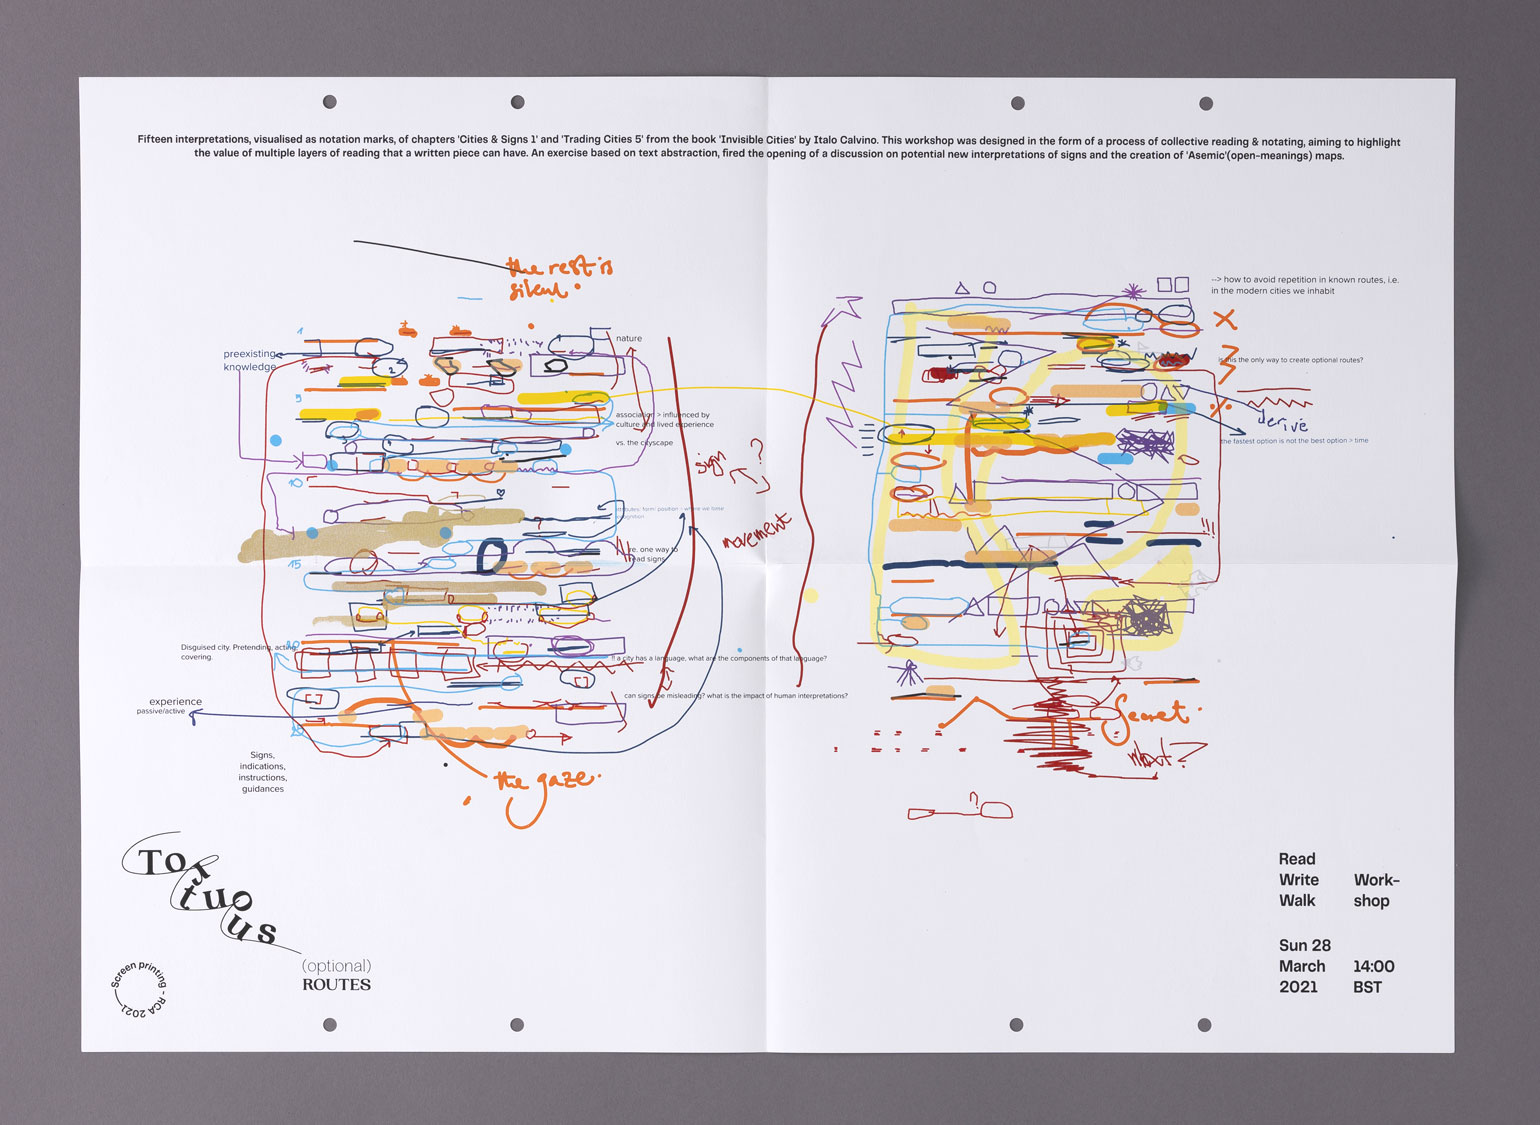 Fifteen interpretations, visualised as notation marks, of chapters 'Cities & Signs 1' and 'Trading Cities 5' from the book 'Invisible Cities' by Italo Calvino. This workshop was designed in the form of a process of collective reading & notating, aiming to highlight
the value of multiple layers of reading that a written piece can have. An exercise based on text abstraction, fired the opening of a discussion on potential new interpretations of signs and the creation of 'Asemic'(open-meanings) maps.
the rest is
silent.
1
nature
preexisting
knowledge
2
5
association > influenced by
culture and lived experience
vs. the cityscape
10
attributes: form/ position - where we base
recognition
15
one way to
read signs
Disguised city. Pretending, acting,
covering.
20
!! a city has a language, what are the components of that language?
can signs be misleading? what is the impact of human interpretations?
experience
passive/active
25
Signs,
indications,
instructions,
guidances
the gaze.
sign
?
movement
--> how to avoid repetition in known routes, i.e.
in the modern cities we inhabit
is this the only way to create optional routes?
derive
the fastest option is not the best option > time
!!!
Secret.
what?
?
Tortuous
(optional)
ROUTES
Screen printing - RCA 2021
Read
Write Work-
Walk shop
Sun 28
March 14:00
2021 BST